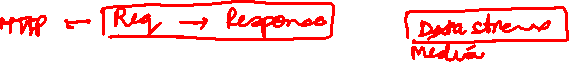 HTTP ← Req → Response
Data streams
Media